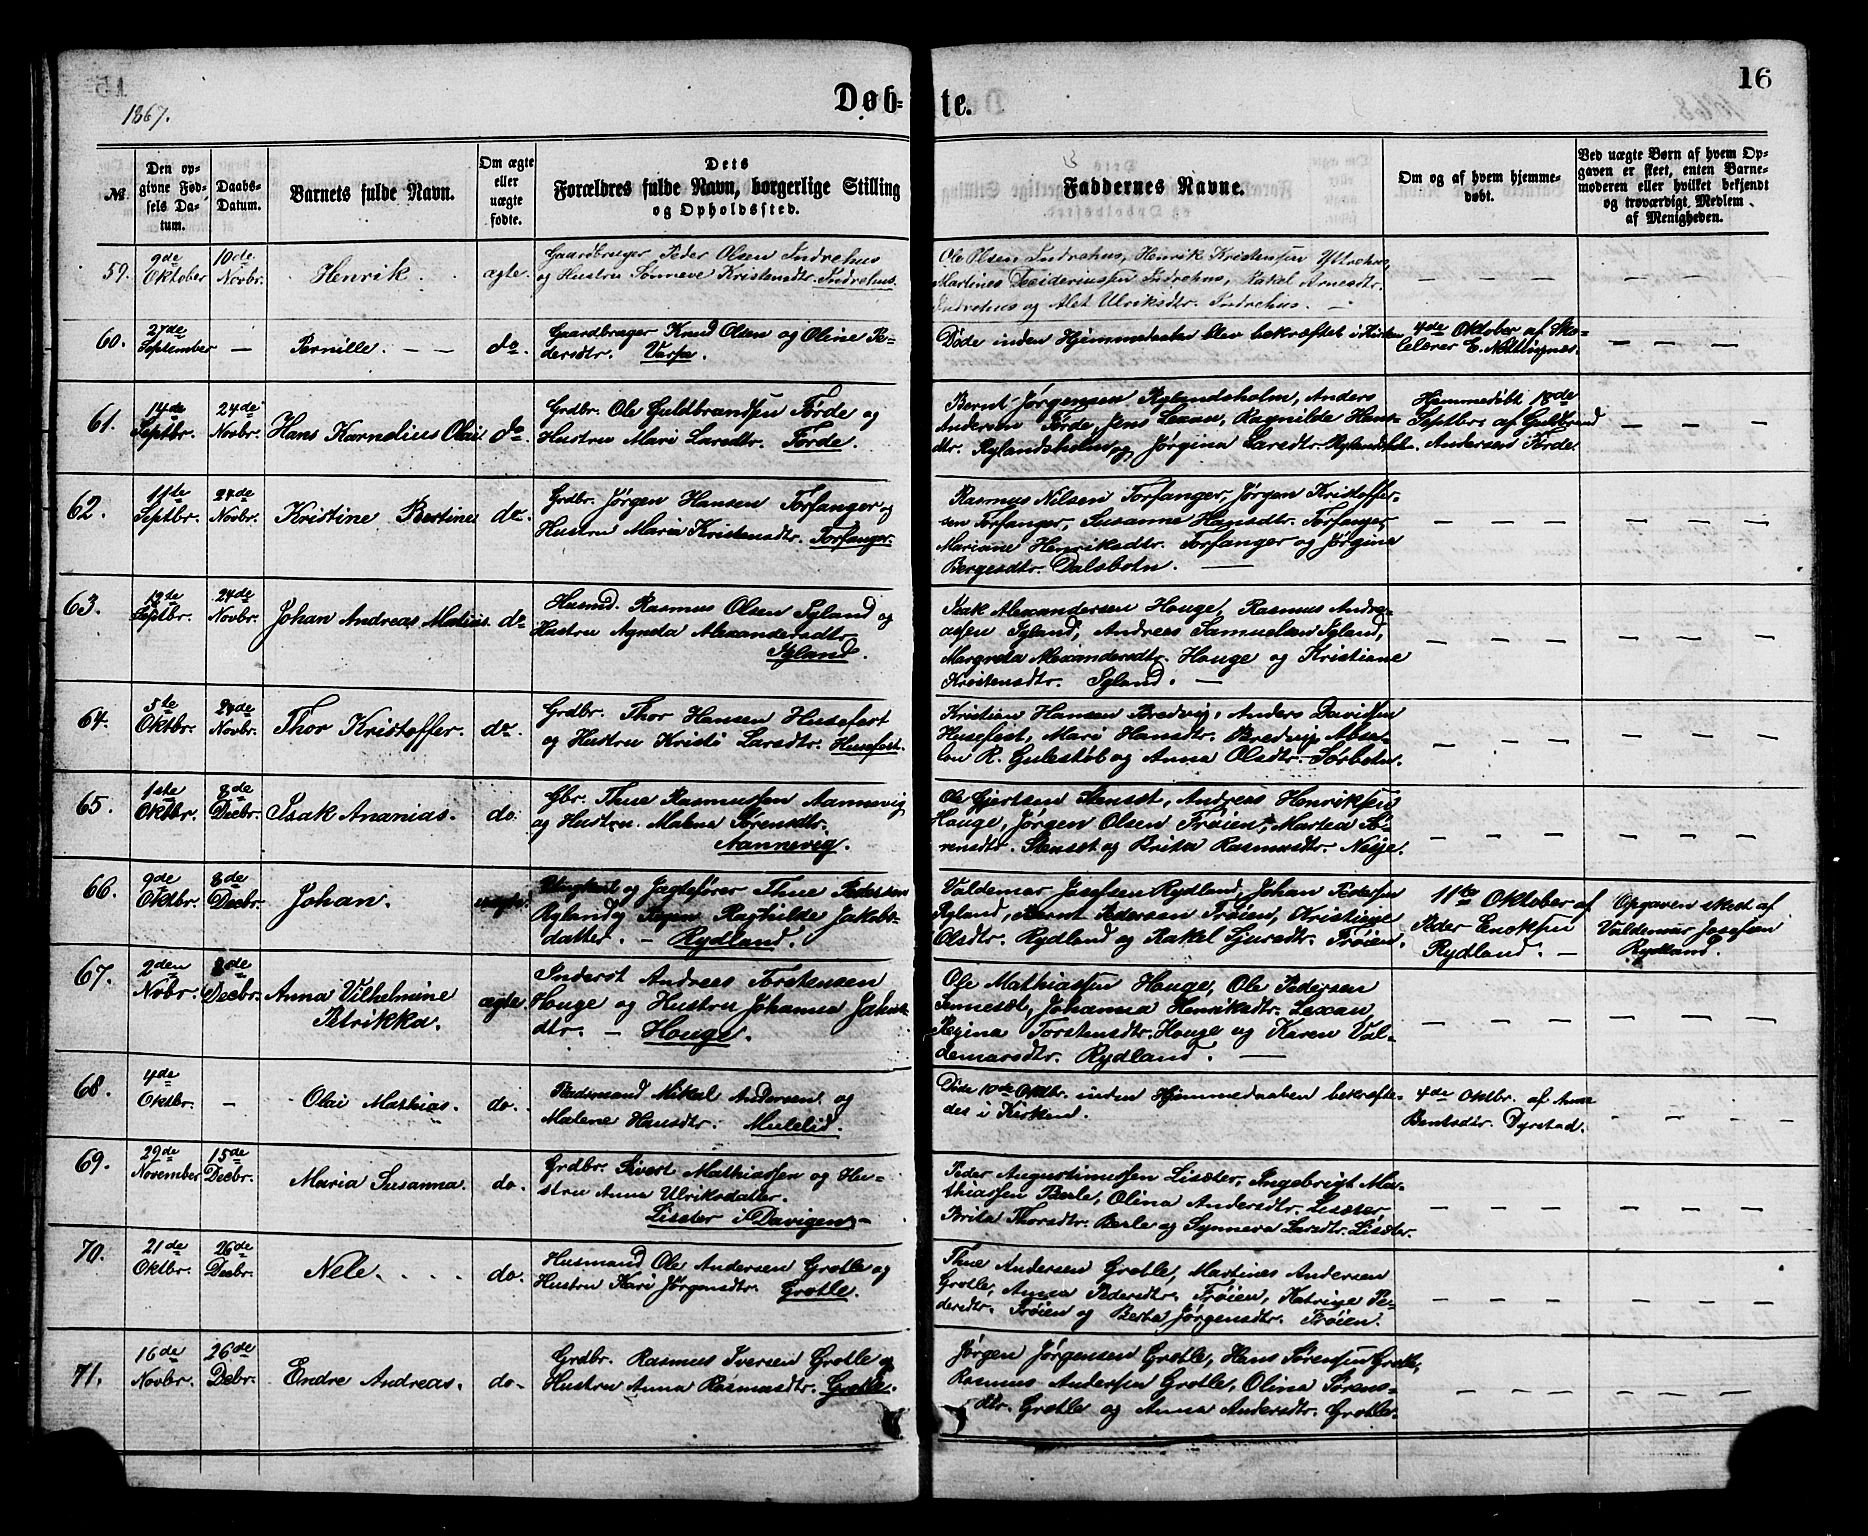 1867.
Døb-
te.
16
№
Den op-
givne Fød-
sels Da-
tum.
Daabs-
Datum.
Barnets fulde Navn.
Om ægte
eller
uægte
fødte.
Dets
Forældres fulde Navn, borgerlige Stilling
og Opholdssted.
Faddernes Navne.
Om og af hvem hjemme-
døbt.
Ved uægte Børn af hvem Op-
gaven er skeet, enten Barne-
moderen eller hvilket bekjendt
og troværdigt Medlem
af Menigheden.
59. 9de Oktober 10de Novbr. Henrik ægte.
Gaardbruger Peder Olsen Indrehus
og Hustru Sønneve Kristensdtr. Indrehus.
Ole Olsen Indrehus, Henrik Kristensen Yttrehus,
Martines Desideriussen Indrehus, Rakel Arnesdtr.
Indrehus og Alet Ulriksdtr. Indrehus. —
60. 27de September — Pernille. — — do.
Gaardbruger Knud Olsen og Oline Pe-
dersdtr.
Døde inden Hjemmedaaben blev bekræftet i Kirken
4de Oktober af Sko-
lelærer E.
61. 14de Septbr. 24de Novbr. Hans Karnelius Olai do.
Grdbr. Ole Guldbrandsen Førde og
Hustru Mari Larsdtr. Førde.
Bernt Jørgensen Rylandsholm, Anders
Andersen Førde, Jens Lexan, Ragnilde Hans-
dtr. Rylandsholm og Jørgina Larsdtr. Rylandsholm.
Hjemmedøbt 18de
Septbr. af Guldbrand
Andersen Førde
62. 11te Septbr. 24de Novbr. Kristine Bertine do.
Grdbr. Jørgen Hansen Torfanger og
Hustru Maria Kristensdtr. Torfanger.
Rasmus Nilsen Torfanger, Jørgen Kristoffer-
sen Torfanger, Susanne Hansdtr. Torfanger,
Mariane Henriksdtr. Torfanger og Jørgine
Børgesdtr. Dalsbotn. —
63. Septbr. 24de Novbr. Johan Andreas Matias. do.
Husmd. Rasmus Olsen Igland og
Hustru Agneta Alexandersdtr.
Igland.
Isak Alexandersen Houge, Rasmus Andre-
assen Igland, Andreas Samuelsen Igland,
Margreta Alexandersdtr. Houge og Kristiane
Kristensdtr. Igland. —
64. 5te Oktbr. 24de Novbr. Thor Kristoffer. do.
Grdbr. Thor Hansen Husefest
og Hustru Kristi Larsdtr. Husefest.
Kristian Hansen Bredvig, Anders Davidsen
Husefest, Mari Hansdtr. Bredvig, Absa-
lon R. Gulestøb og Anna Olsdtr. Sørbotn.
65. 1ste Oktbr. 8de Decbr. Isak Ananias. do.
Gbr. Thue Rasmussen Aannevig
og Hustru Malena Sørensdtr.
Aannevig.
Ole Gjertsen Stensæt, Andreas Henriksen
Houge, Jørgen Olsen Frøien, Martea Sø-
rensdtr. Stensæt og Brita Rasmusdtr. Nesje.
66. 9de Oktbr. 8de Decbr. Johan. uægte.
Ungkarl og Jagtefører Thue Pedersen
Ryland og Pigen Raghilde Jakobs-
datter. — Rydland.
Valdemar Josefsen Rydland, Johan Pedersen
Ryland, Bernt Pedersen Frøien, Kristine
Olsdtr. Rydland og Rakel Sjursdtr. Frøien.
11te Oktober af
Peder Enoksen
Rydland. —
Opgaven skeet af
Valdemar Josefsen
Rydland.
67. 2den Novbr. 8de Decbr. Anna Vilhelmine
Petrikka. ægte.
Inderst Andreas Torstensen
Houge og Hustru Johanna
dtr. — Houge.
Ole Mathiassen Houge, Ole Pedersen
Sennesæt, Johanna Henriksdtr. Lexan,
Regina Torstensdtr. Houge og Karen Val-
demarsdtr. Rydland. —
68. 4de Oktbr. — Olai Mathias. do.
Mikal Andersen og
Malene Hansdtr. Mulelid.
Døde 10de Oktbr. inden Hjemmedaaben bekræfte-
des i Kirken.
4de Oktbr. af Anna
Bentsdtr. Dyrstad.
69. 29de November 15de Decbr. Maria Susanna. do.
Grdbr. Sivert Mathiassen og Hu-
stru Anna Ulriksdatter.
Lisæter i Davigen —
Peder Augustinussen Lisæter, Ingebrigt Ma-
thiassen Berle, Olina Andersdtr. Lisæter,
Brita Thorsdtr. Berle og Synneva Larsdtr. Lisæter.
70. 21de Oktbr. 26de Decbr. Nele. do.
Husmand Ole Andersen Grotle og
Hustru Kari Jørgensdtr. Grotle.
Thue Andersen Grotle, Martines Andersen
Grotle, Anna Pedersdtr. Frøien, Katrine Pe-
dersdtr. Frøien og Berta Jørgensdtr. Frøien.
71. 16de Novbr. 26de Debr. Endre Andreas. do.
Grdbr. Rasmus Iversen Grotle og
Hustru Anna Rasmusdtr. Grotle.
Jørgen Jørgensen Grotle, Hans Sørensen Grotle,
Rasmus Andersen Grotle, Olina Sørens-
dtr. Grotle og Anna Andersdtr. Grotle.